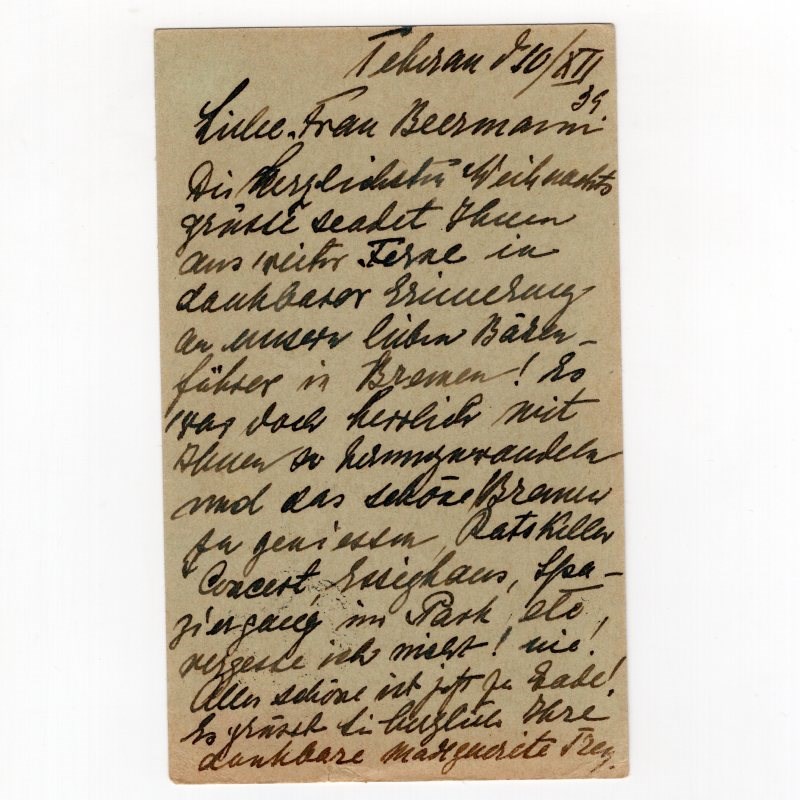 Teheran d 10/XII
39.
Liebe Frau Beermann.
Die herzlichsten Weihnachts
grüsse sendet Ihnen
aus weiter Ferne in
dankbarer Erinnerung
an unsern lieben Bären-
führer in Bremen! Es
war doch herrlich mit
Ihnen so herumzuwandeln
und das schöne Bremen
zu geniessen, Ratskeller
Concert, Essighaus, Spa-
ziergang im Park etc,
vergesse ich nicht! nie!
Alles schöne ist jetzt zu Ende!
Es grüsst Sie herzlich Ihre
dankbare Marguerite Frey.